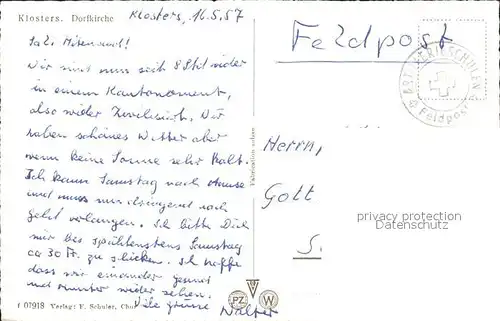 Klosters. Dorfkirche
Klosters, 16.5.57
Feldpost
Wir sind nun seit 8 wider
in einem Kantonement,
also wider Wir
haben schönes Wetter aber
wenn keine Sonne sehr kalt.
Ich kann Samstag nach Hause
und muss nun dringend noch
Geld verlangen. Ich bitte Dich
mir bis spähtenstens Samstag
ca 30 Fr. zu schicken. Ich hoffe
dass wir einander gesund
und munter wider sehen.
Viele grüsse Walter
Herrn,
Gott
S.
Feldpost
privacy protection
Datenschutz
Fabrication suisse
PZ
W
01918 Verlag: F. Schuler, Chur